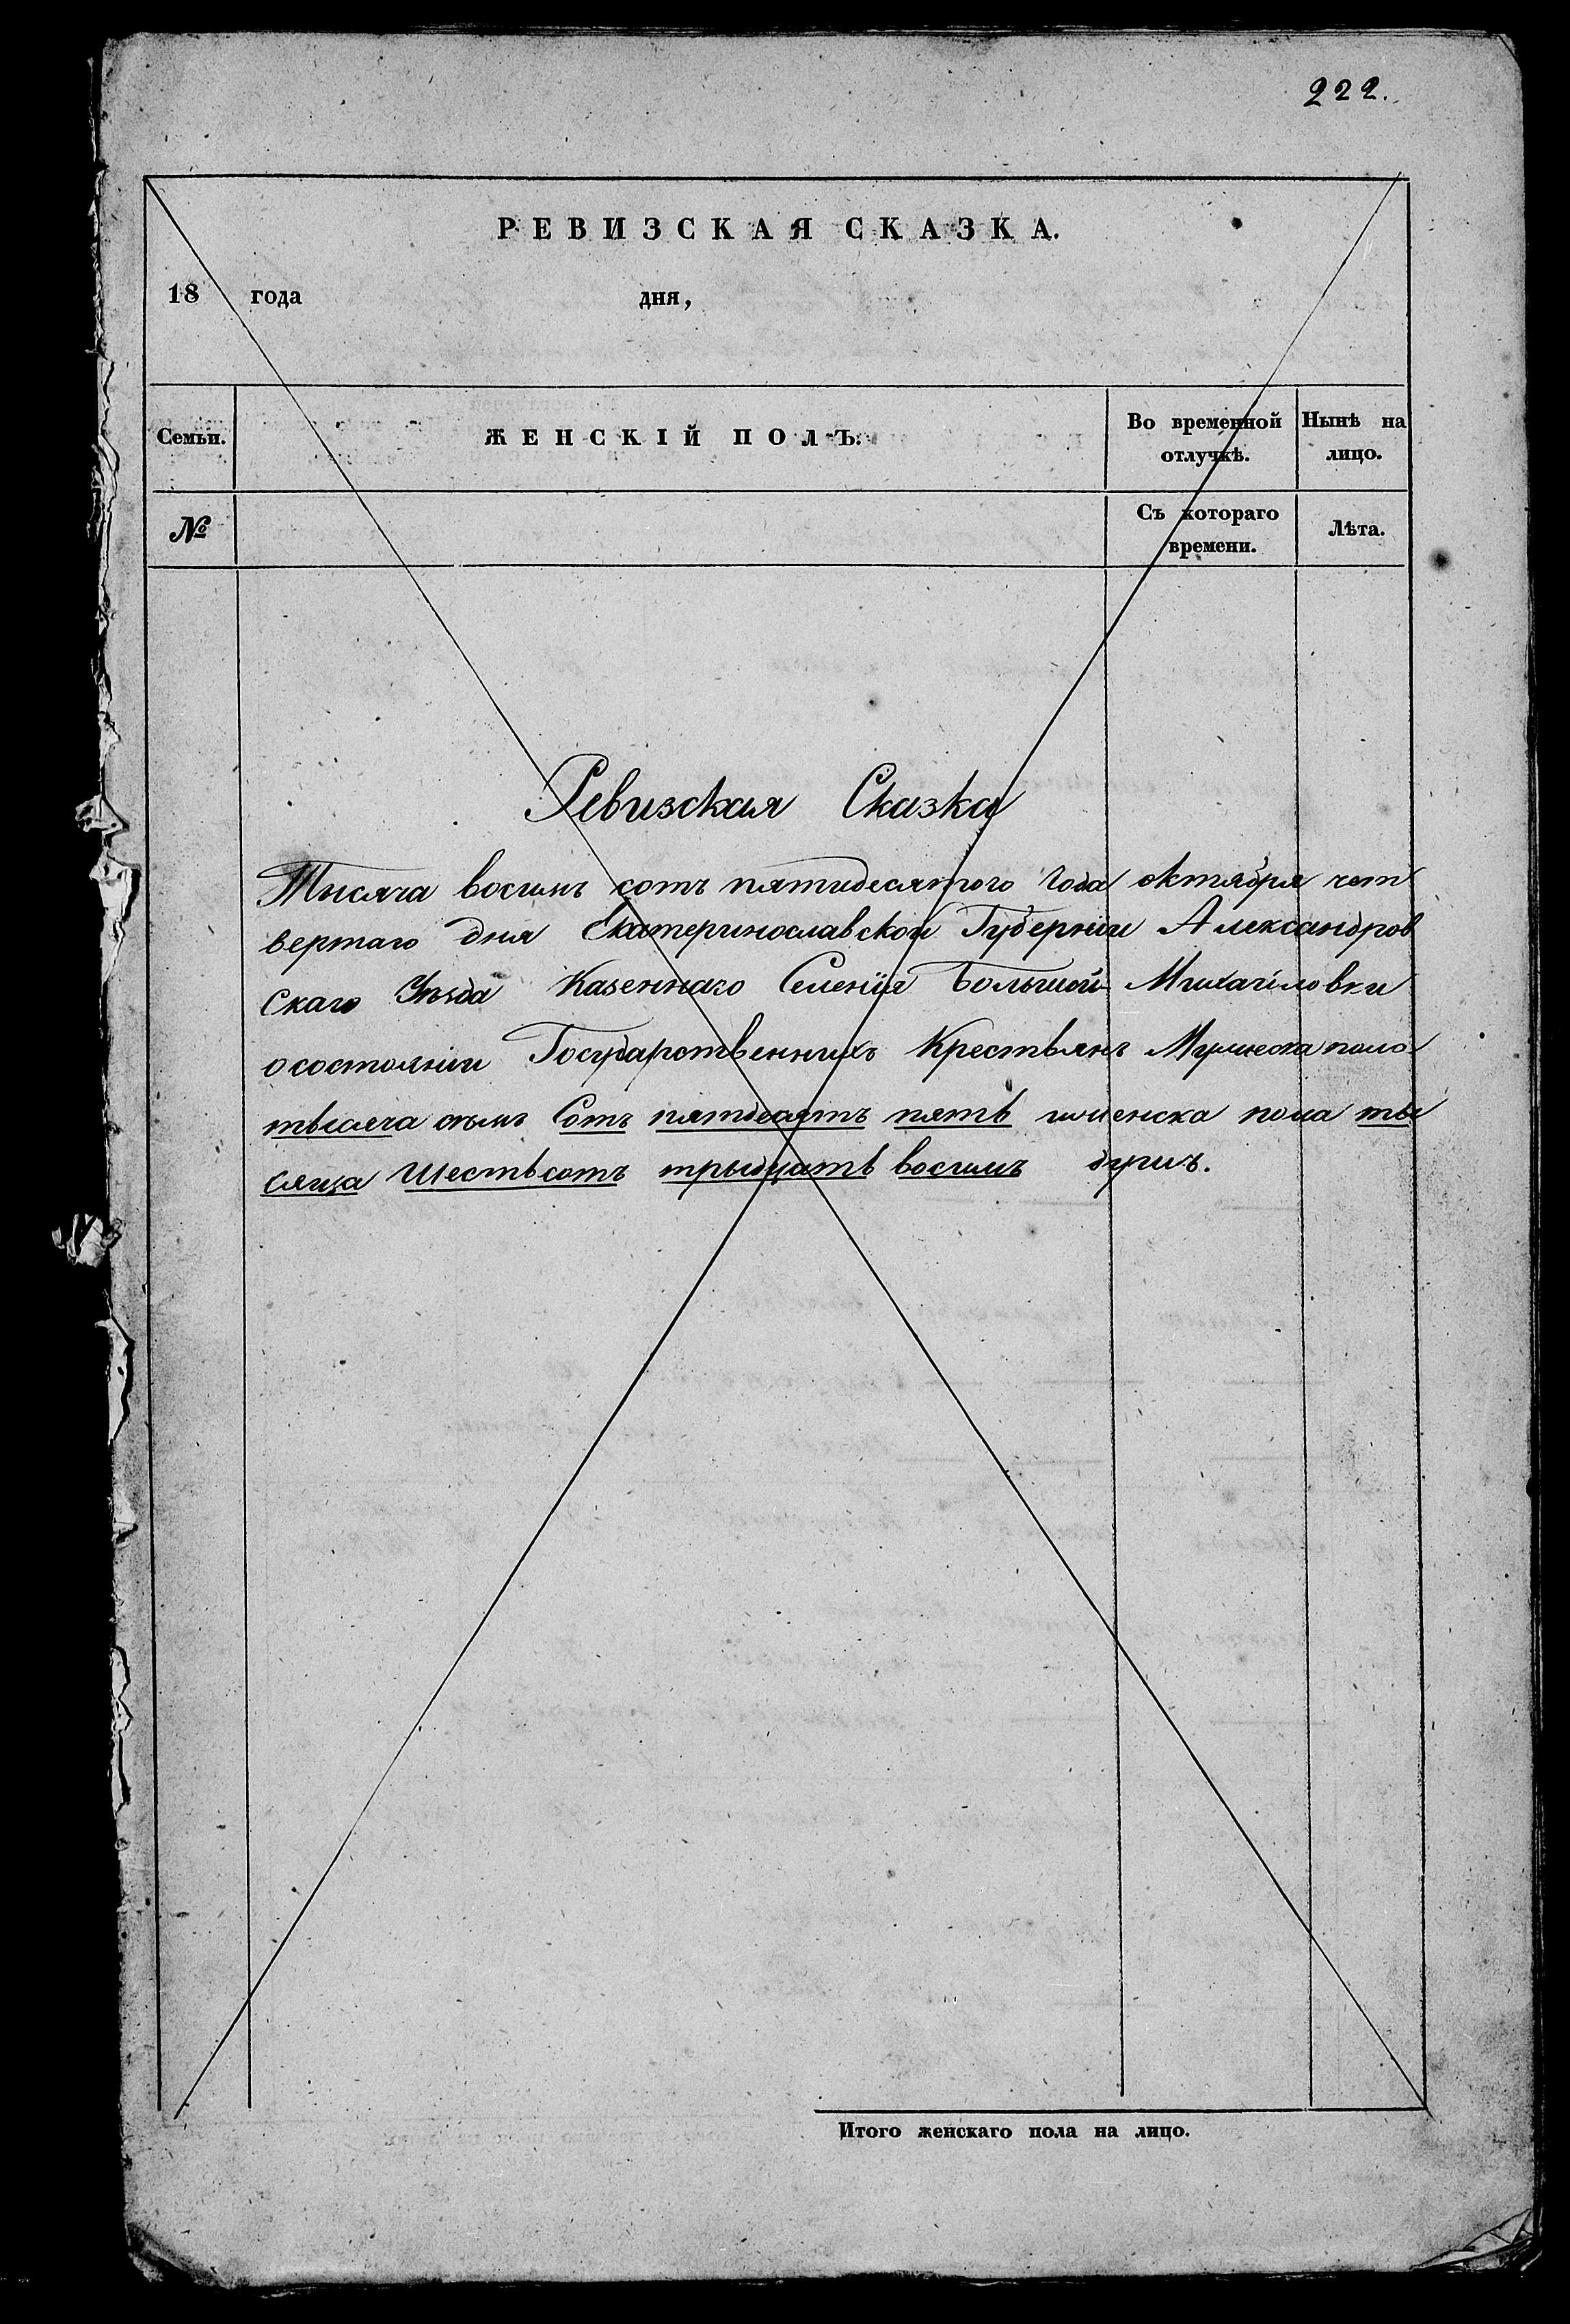 222.
РЕВИЗСКАЯ СКАЗКА.
18 года дня,
Семьи. ЖЕНСКІЙ ПОЛЪ. Во временной отлучкѣ. Нынѣ на лицо.
№ Съ котораго времени. Лѣта.
Ревизская Сказка
Тысяча восимъ сотъ пятидесятого года октября чет
вертаго дня Екатеринославской Губерніи Александров
скаго Уѣзда Казеннаго Селенія Большой Михайловки
осостояніи Государственныхъ Крестьянъ Мужеска пола
тысяча сѣмъ Сотъ пятдесятъ пять женска пола ты
сяща Шестьсотъ трыдцать восимъ душъ.
Итого женскаго пола на лицо.